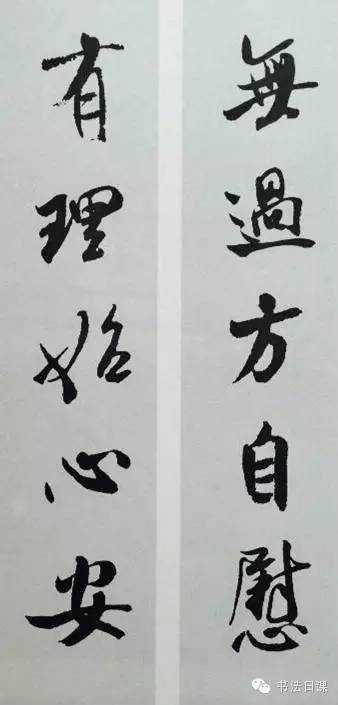 無過方自慰
有理始心安
书法日课